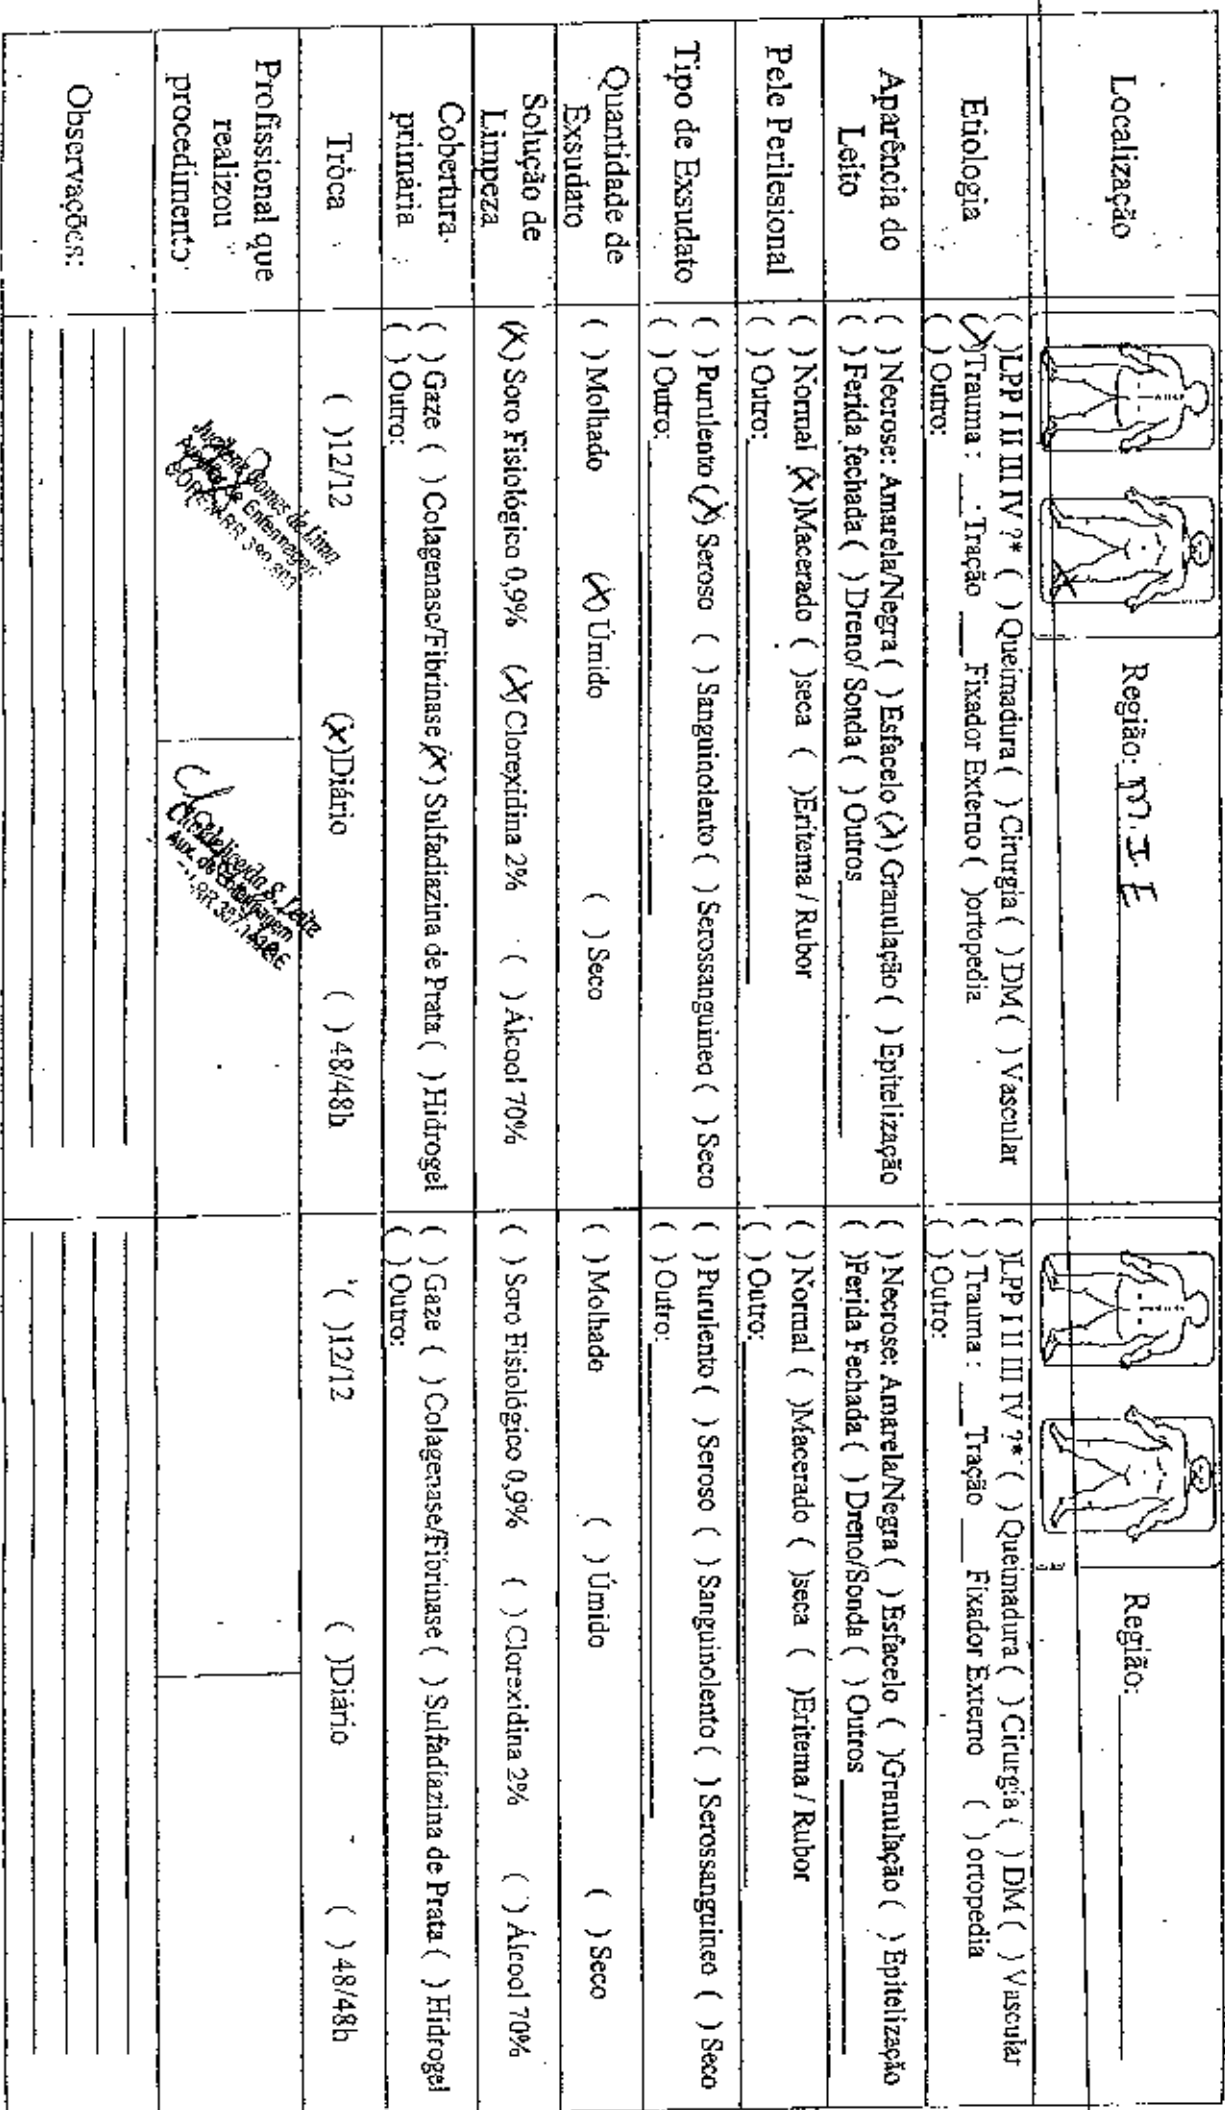 Localização
Região: M.I.E
Região:
Etiologia
( )LPP I II III IV ?* ( ) Queimadura ( ) Cirurgia ( ) DM ( ) Vascular
(X)Trauma : ___ Tração ___ Fixador Externo ( )ortopedia
( ) Outro:
( )LPP I II III IV ?* ( ) Queimadura ( ) Cirurgia ( ) DM ( ) Vascular
( ) Trauma : ___ Tração ___ Fixador Externo ( ) ortopedia
( ) Outro:
Aparência do
Leito
( ) Necrose: Amarela/Negra ( ) Esfacelo (X) Granulação ( ) Epitelização
( ) Ferida fechada ( ) Dreno/ Sonda ( ) Outros
( ) Necrose: Amarela/Negra ( ) Esfacelo ( )Granulação ( ) Epitelização
( )Ferida Fechada ( ) Dreno/Sonda ( ) Outros
Pele Perilesional
( ) Normal (X)Macerado ( )seca ( )Eritema / Rubor
( ) Outro:
( ) Normal ( )Macerado ( )seca ( )Eritema / Rubor
( ) Outro:
Tipo de Exsudato
( ) Purulento (X) Seroso ( ) Sanguinolento ( ) Serossanguineo ( ) Seco
( ) Outro:
( ) Purulento ( ) Seroso ( ) Sanguinolento ( ) Serossanguineo ( ) Seco
( ) Outro:
Quantidade de
Exsudato
( ) Molhado (X) Úmido ( ) Seco
( ) Molhado ( ) Úmido ( ) Seco
Solução de
Limpeza
(X) Soro Fisiológico 0,9% (X) Clorexidina 2% ( ) Álcool 70%
( ) Soro Fisiológico 0,9% ( ) Clorexidina 2% ( ) Álcool 70%
Cobertura
primária
( ) Gaze ( ) Colagenase/Fibrinase (X) Sulfadiazina de Prata ( ) Hidrogel
( ) Outro:
( ) Gaze ( ) Colagenase/Fibrinase ( ) Sulfadiazina de Prata ( ) Hidrogel
( ) Outro:
Troca
( )12/12 (X)Diário ( ) 48/48h
( )12/12 ( )Diário ( ) 48/48h
Profissional que
realizou
procedimento
Gomes de Lima
de Enfermagem
S. Leite
Aux. de Enfermagem
Observações: